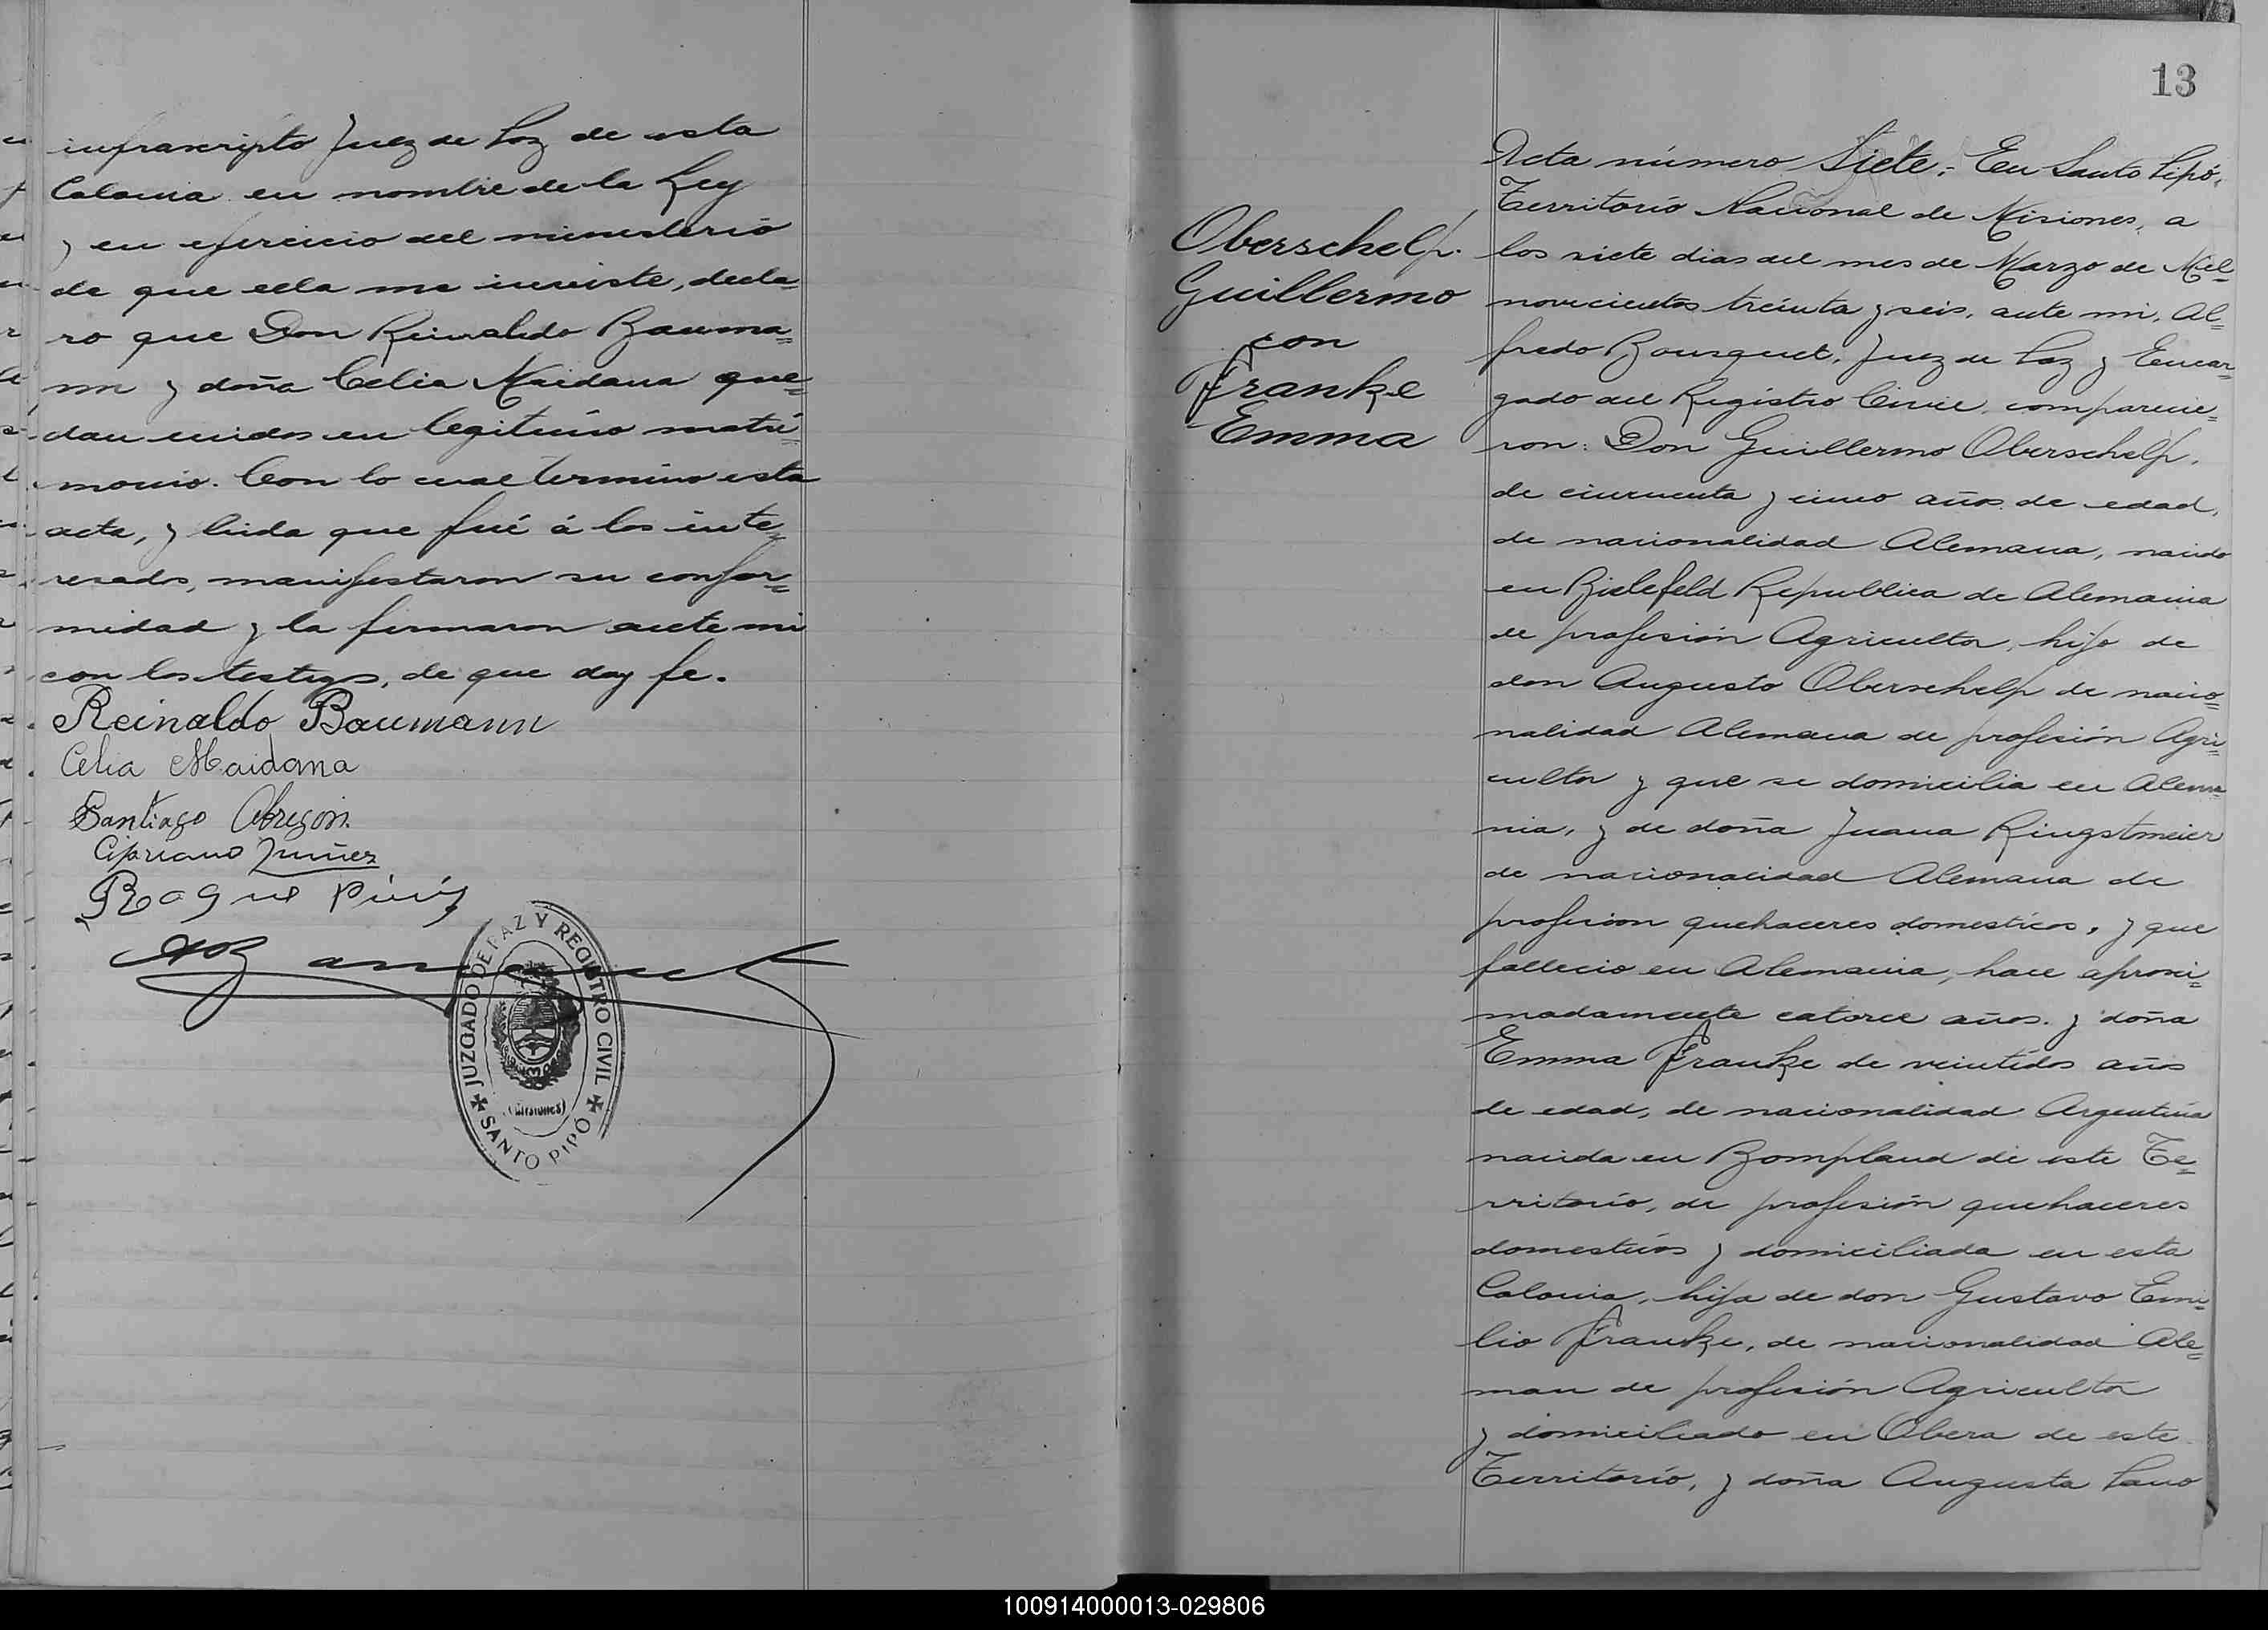 infrascripto Juez de Paz de esta
Colonia en nombre de la Ley
y en ejercicio del ministerio
de que ella me inviste, decla=
ro que Don Reinaldo Bauma=
nn y doña Celia Maidana que=
dan unidos en legitimo matri=
monio. Con lo cual termino esta
acta, y leida que fué á los inte=
resados, manifestaron su confor=
midad y la firmaron ante mi
con los testigos, de que doy fe.
Reinaldo Baumann
Celia Maidana
Santiago Obregon
Cipriano Nuñez
Roque
JUZGADO DE PAZ Y REGISTRO CIVIL
(Misiones)
SANTO PIPÓ
13
Oberschelp.
Guillermo
con
Franke
Emma
Acta número Siete.- En Santo Pipó,
Territorio Nacional de Misiones, a
los siete dias del mes de Marzo de Mil=
novecientos treinta y seis, ante mi, Al=
fredo Bousquet, Juez de Paz y Encar=
gado del Registro Civil, comparecie=
ron: Don Guillermo Oberschelp,
de cincuenta y cinco años de edad,
de nacionalidad Alemana, nacido
en Bielefeld Republica de Alemania
de profesión Agricultor, hijo de
don Augusto Oberschelp de nacio=
nalidad Alemana de profesión Agri=
cultor y que se domicilia en Alema=
nia, y de doña Juana Ringstmeier
de nacionalidad Alemana de
profesion quehaceres domesticos, y que
fallecio en Alemania, hace aproxi=
madamente catorce años. y doña
Emma Franke de veintidos años
de edad, de nacionalidad Argentina
nacida en Bompland de este Te=
rritorio, de profesión quehaceres
domesticos y domiciliada en esta
Colonia, hija de don Gustavo Emi=
lio Franke, de nacionalidad Ale=
man de profesión Agricultor
y domiciliado en Obera de este
Territorio, y doña Augusta
100914000013-029806